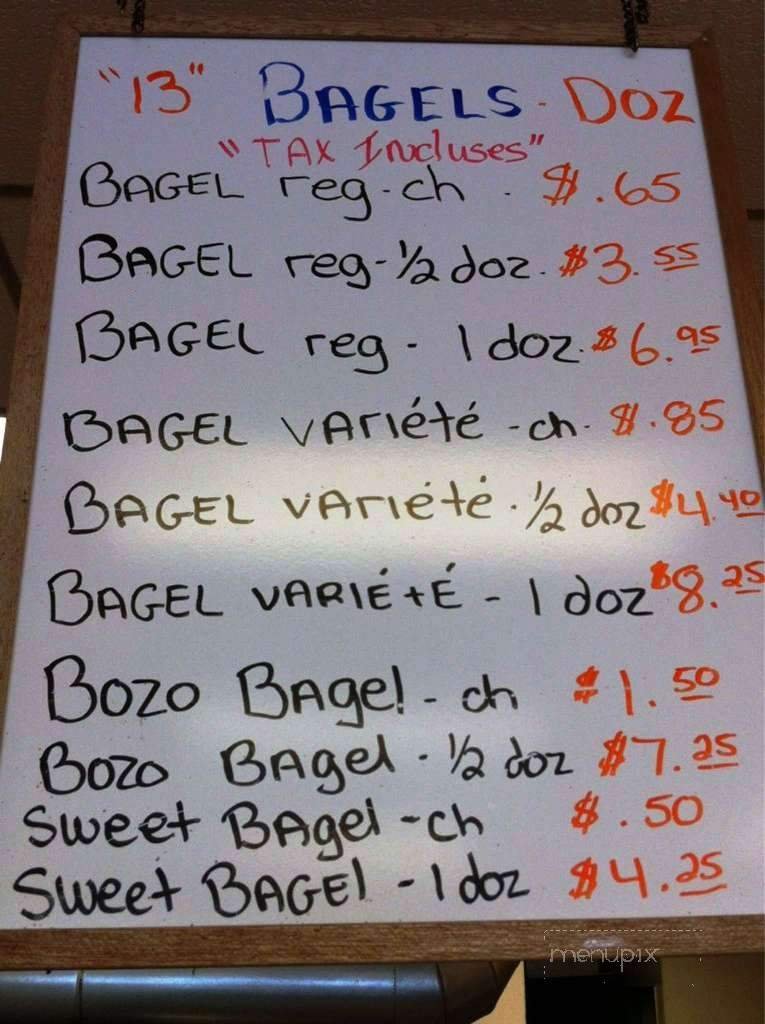 "13" BAGELS - DOZ
"TAX Incluses"
BAGEL reg - ch - $.65
BAGEL reg - 1/2 doz. $3.55
BAGEL reg - 1 doz. $6.95
BAGEL VAriété - ch - $.85
BAGEL VAriété - 1/2 doz $4.40
BAGEL VARIÉtÉ - 1 doz $8.25
BOZO BAgel - ch $1.50
BOZO BAgel - 1/2 doz $7.25
Sweet BAgel - ch $.50
Sweet BAGEl - 1 doz $4.25
menupix